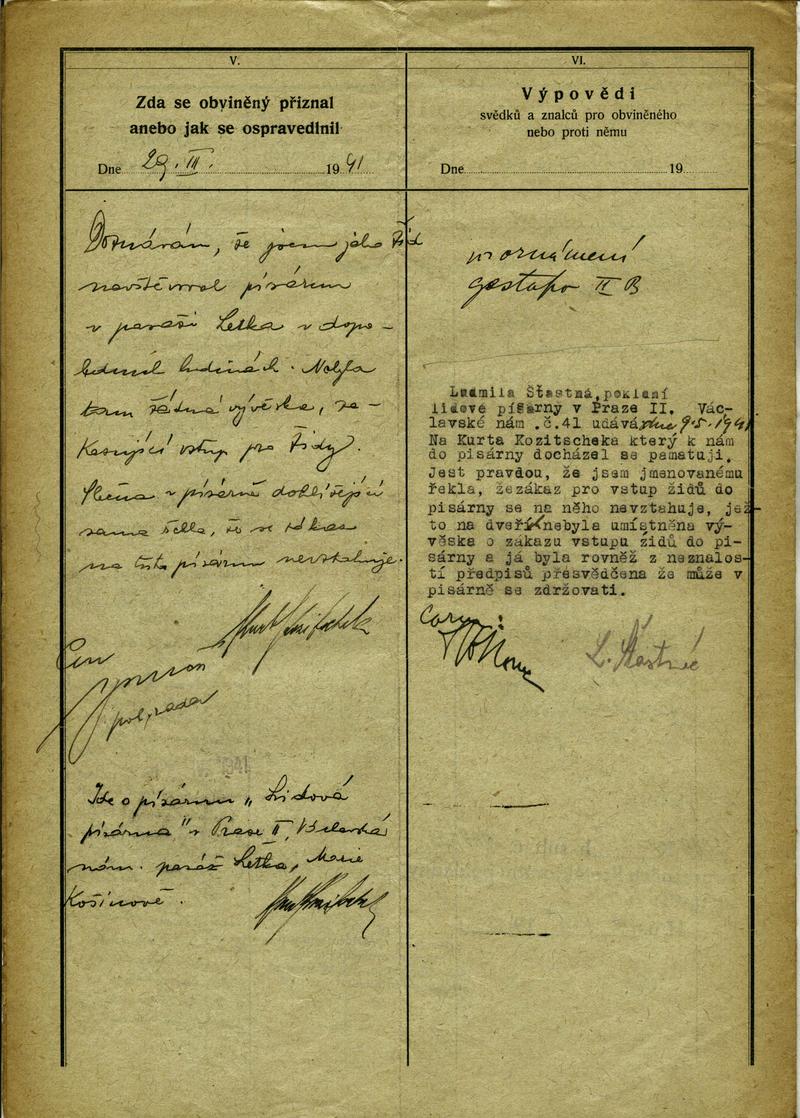 V.
Zda se obviněný přiznal
anebo jak se ospravedlnil
Dne 29. III. 1941
Doznávám, že jsem jako žid
navštěvoval písárnu
v pasáži Letka v dopo-
ledních hodinách. Nebyla
tam řádná vývěska, za-
kazující vstup pro židy.
Slečna v písárně dohlížející
sama řekla, že se zákaz
na tuto písárnu nevztahuje.
pol. rada
Jde o písárnu "Lidová
písárna" v Praze II, Václavské
nám. pasáž Letka, Marie
Košinové.
VI.
Výpovědi
svědků a znalců pro obviněného
nebo proti němu
Dne 19
oznámení
gestapo II B
Ludmila Šťastná, pokladní
lidové písárny v Praze II. Vác-
lavské nám .č.41 udává, dne 9.5.1941
Na Kurta Kozitscheka který k nám
do pisárny docházel se pamatuji.
Jest pravdou, že jsem jmenovanému
řekla, žezákaz pro vstup židů do
pisárny se na něho nevztahuje, jež-
to na dveří nebyla umístněna vý-
věska o zákazu vstupu židů do pi-
sárny a já byla rovněž z neznalos-
tí předpisů přesvědčena že může v
pisárně se zdržovati.
L. Šťastná